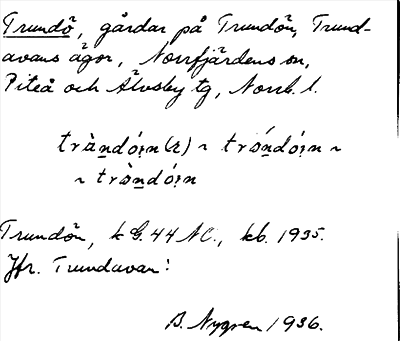 Trundö, gårdar på Trundön, Trund-
avans ägor, Norrfjärdens sn,
Piteå och Älvsby tg, Norrb. l.
tràndọ́n(r) ~ tróndọ́n ~
~ tròndọ́n
Trundön, k G. 44 NC., kb. 1935.
Jfr. Trundavan!
B. Nygren 1936.